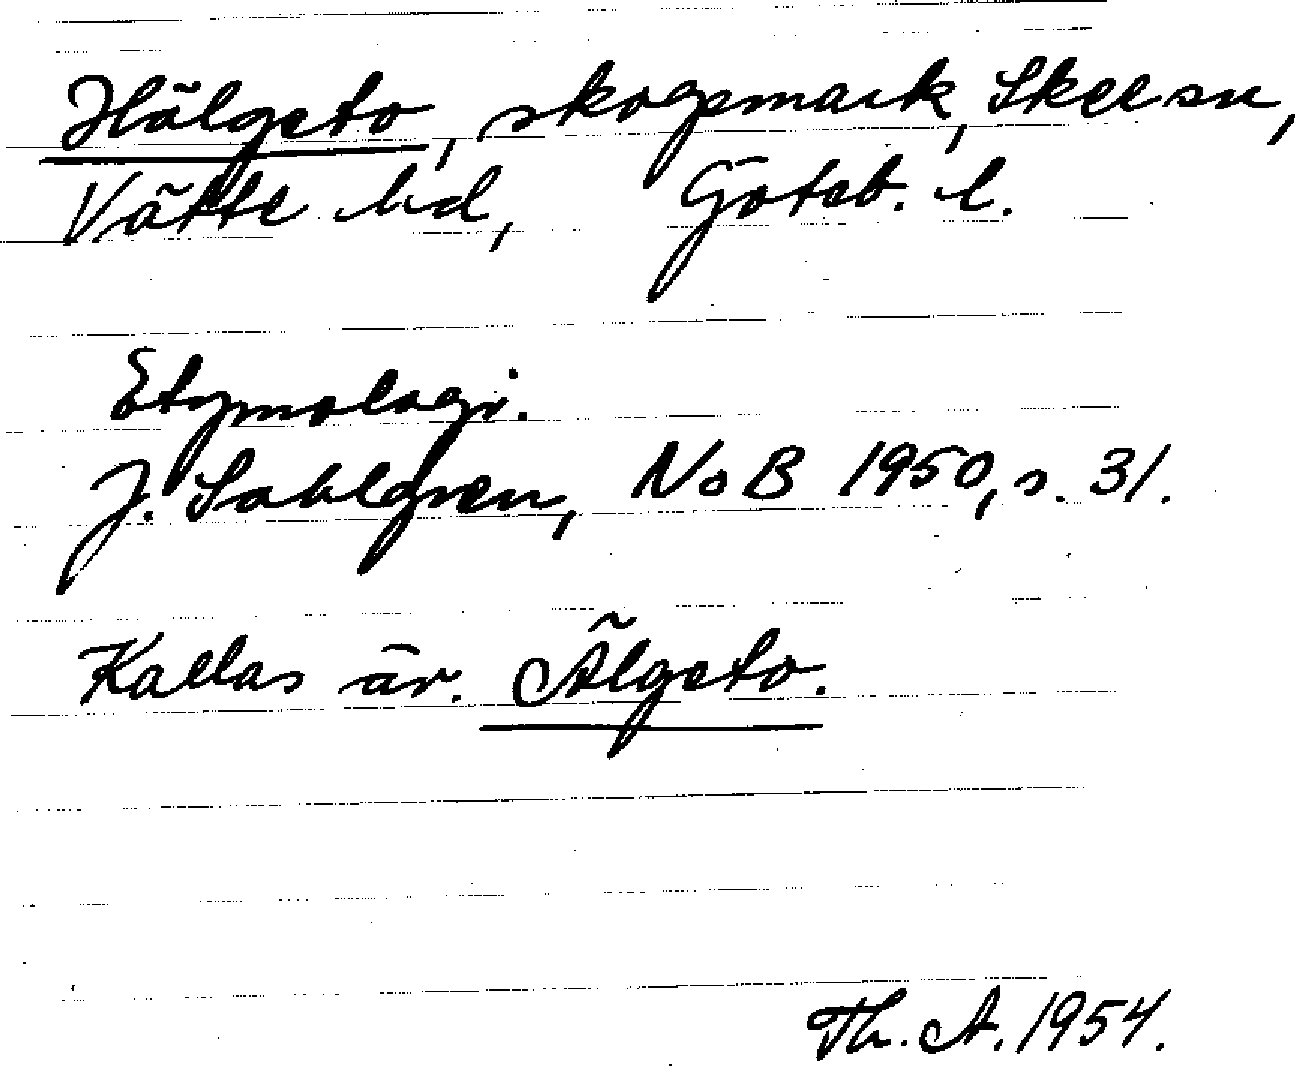 Hälgeto, skogsmark, Skee sn,
Vätte hd, Göteb. l.
Etymologi.
J. Sahlgren, NoB 1950, s. 31.
Kallas är. Älgeto.
Th. A. 1954.